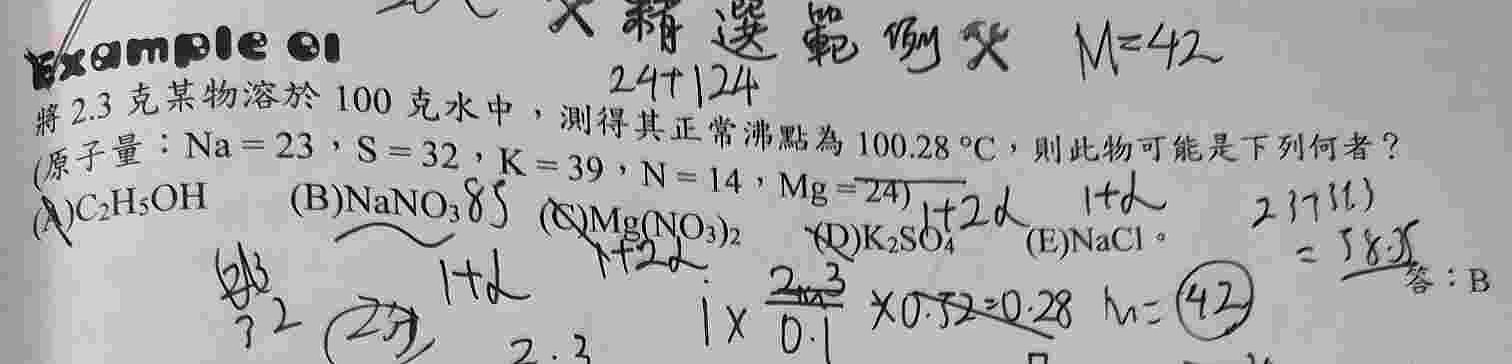 精選範例 M=42
Example 01
24+124
將 2.3 克某物溶於 100 克水中，測得其正常沸點為 100.28 °C，則此物可能是下列何者？
(原子量：Na = 23，S = 32，K = 39，N = 14，Mg = 24)
(A)C₂H₅OH (B)NaNO₃ 85 (C)Mg(NO₃)₂ (D)K₂SO₄ (E)NaCl。
1+2α 1+α
= 58.5
1+α 1+2α
答：B
32
i × 2.3/M / 0.1 ×0.52=0.28 M= 42
2.3